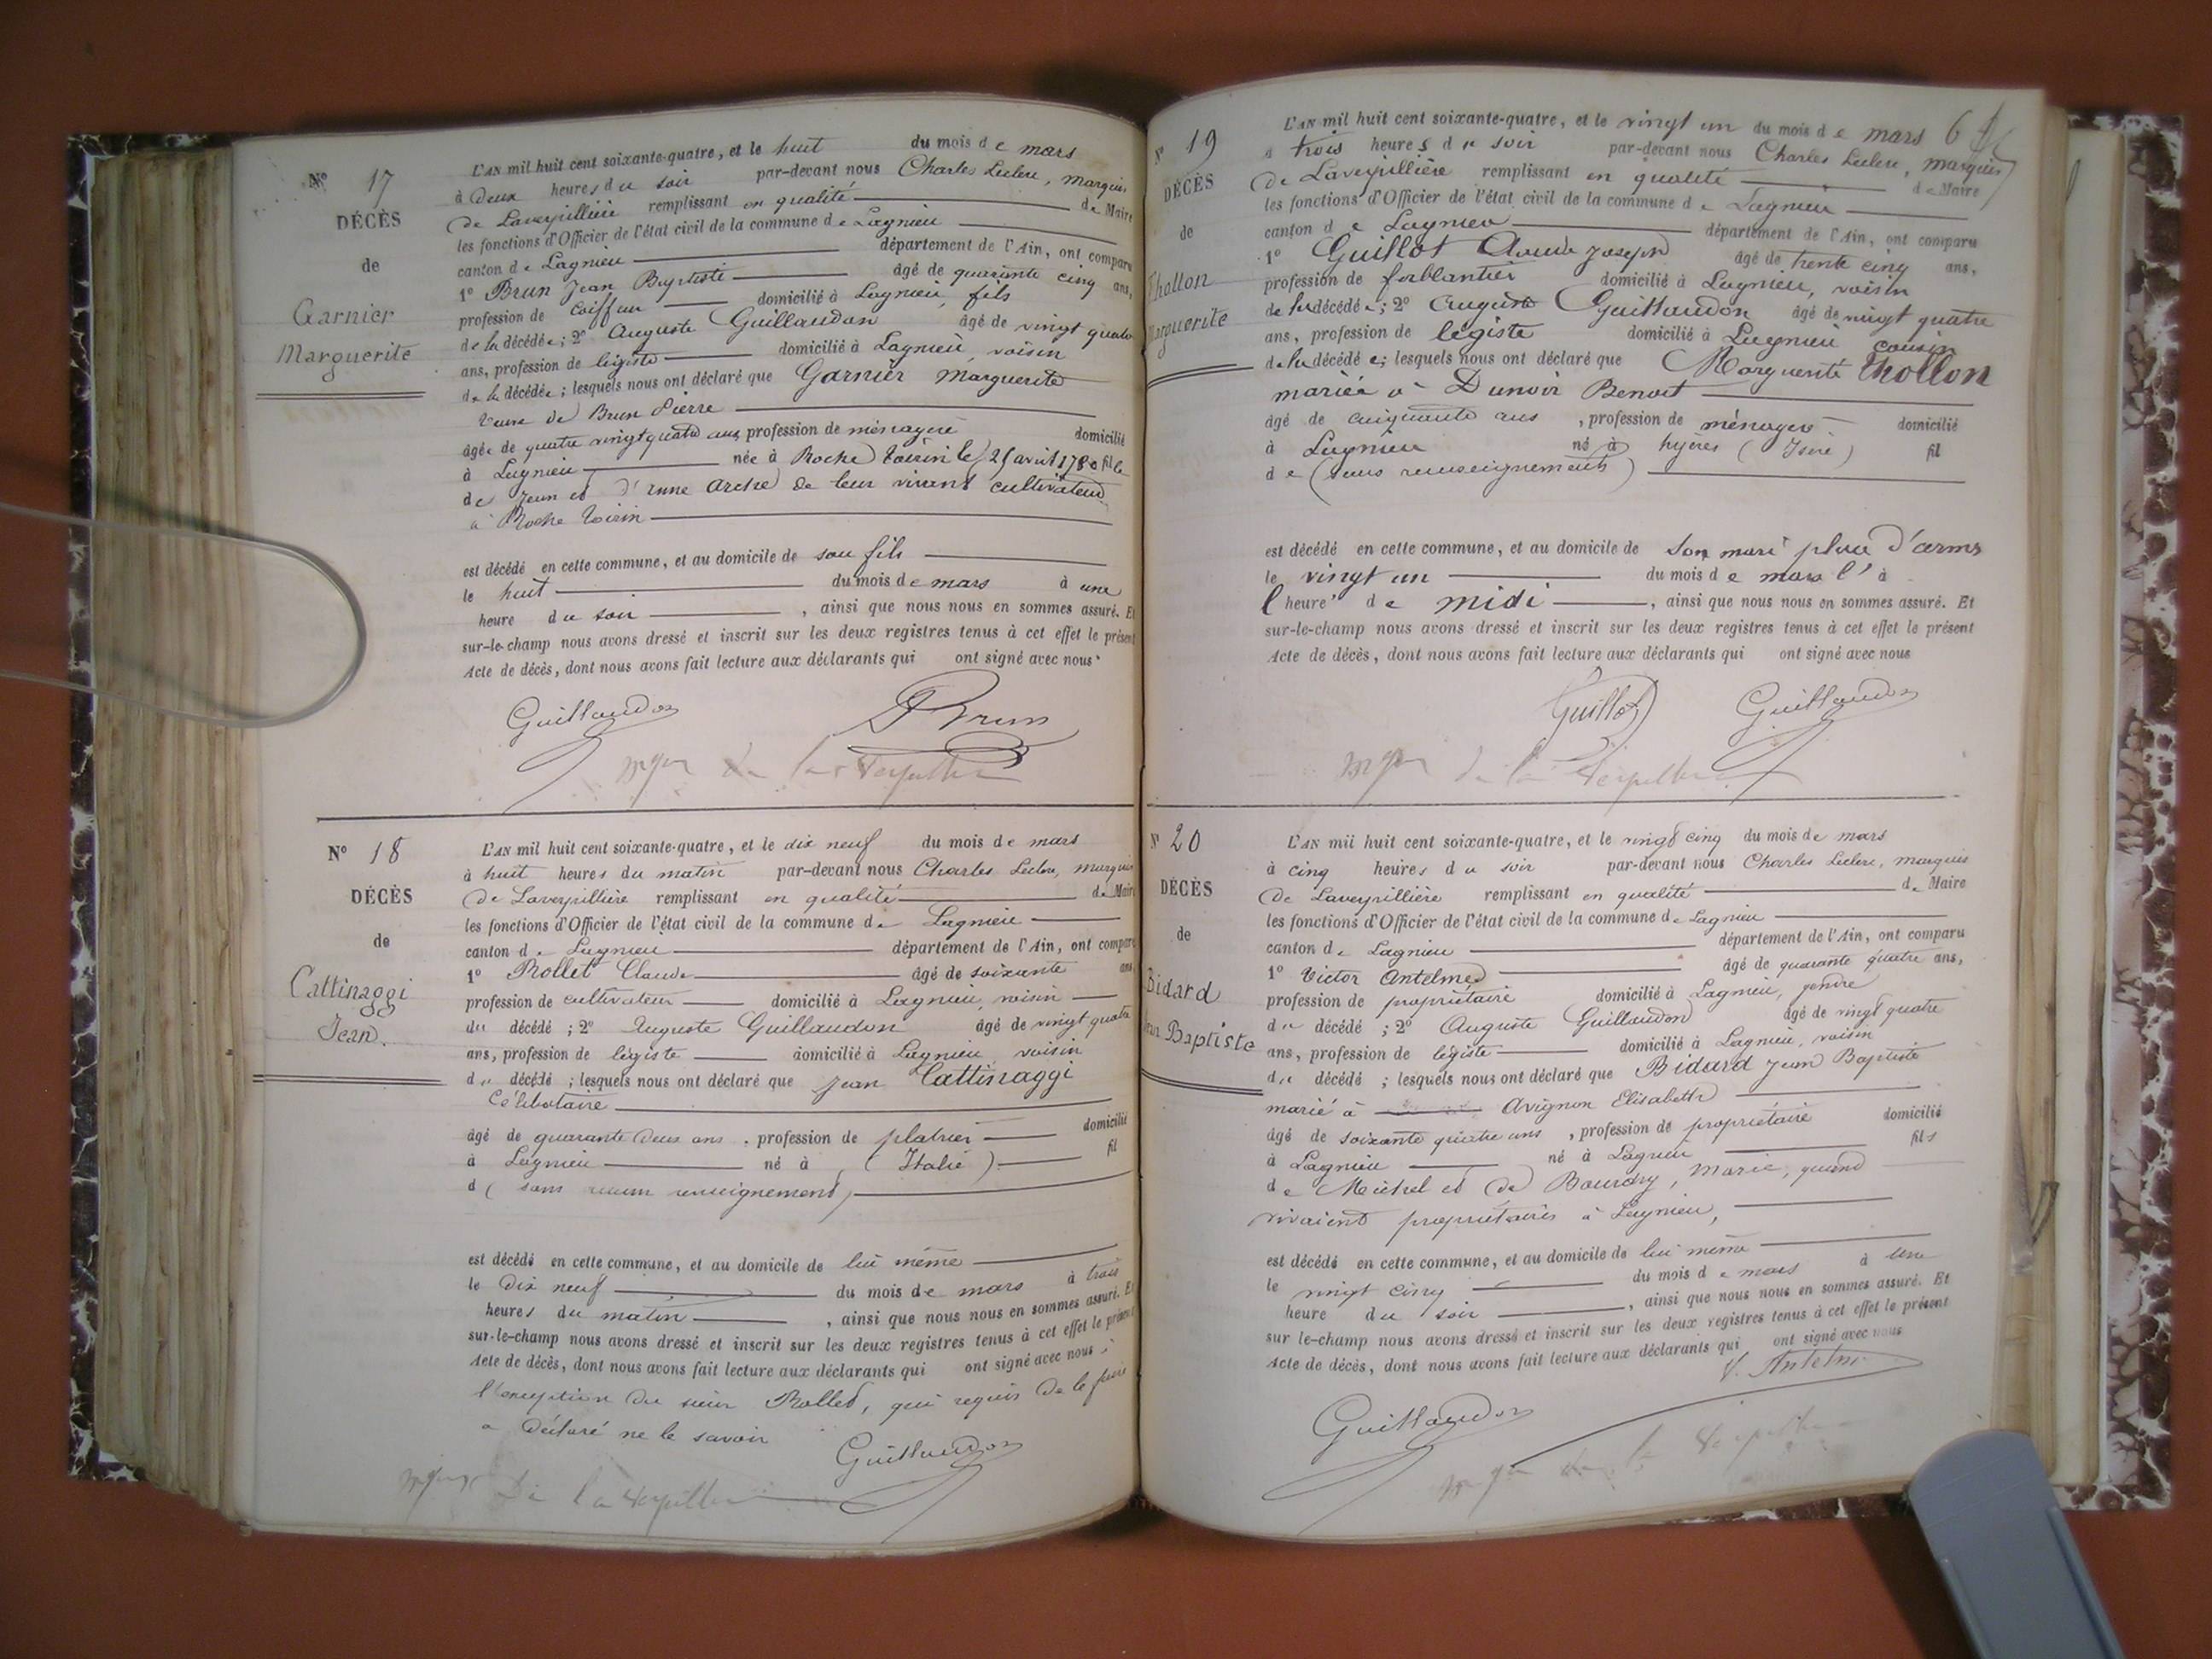 N° 17
DÉCÈS
de
Garnier
Marguerite
L'AN mil huit cent soixante-quatre, et le huit du mois de mars
à deux heures du soir par-devant nous Charles Leclerc, marquis
de Laverpillière remplissant en qualité de Maire
les fonctions d'Officier de l'état civil de la commune de Lagnieu
canton de Lagnieu département de l'Ain, ont comparu
1° Brun Jean Baptiste âgé de quarante cinq ans,
profession de coiffeur domicilié à Lagnieu, fils
de la décédée; 2° Auguste Guillaudon âgé de vingt quatre
ans, profession de légiste domicilié à Lagnieu, voisin
de la décédée; lesquels nous ont déclaré que Garnier Marguerite
veuve de Brun Pierre
âgée de quatre vingt quatre ans, profession de ménagère domicilié
à Lagnieu née à Roche Toirin le 25 avril 1780 fille
de Jean et d'Anne Arche de leur vivant cultivateurs
à Roche Toirin
est décédé en cette commune, et au domicile de son fils
le huit du mois de mars à une
heure du soir, ainsi que nous nous en sommes assuré. Et
sur-le-champ nous avons dressé et inscrit sur les deux registres tenus à cet effet le présent
Acte de décès, dont nous avons fait lecture aux déclarants qui ont signé avec nous
Guillaudon Brun
de la Verpillière
N° 18
DÉCÈS
de
Cattinaggi
Jean.
L'AN mil huit cent soixante-quatre, et le dix neuf du mois de mars
à huit heures du matin par-devant nous Charles Leclerc, marquis
de Laverpillière remplissant en qualité de Maire
les fonctions d'Officier de l'état civil de la commune de Lagnieu
canton de Lagnieu département de l'Ain, ont comparu
1° Rollet Claude âgé de soixante ans
profession de cultivateur domicilié à Lagnieu, voisin
du décédé; 2° Auguste Guillaudon âgé de vingt quatre
ans, profession de légiste domicilié à Lagnieu, voisin
du décédé; lesquels nous ont déclaré que Jean Cattinaggi
célibataire
âgé de quarante deux ans, profession de platrier domicilié
à Lagnieu né à (Italie) fil
d (sans aucun renseignement)
est décédé en cette commune, et au domicile de lui même
le dix neuf du mois de mars à trois
heures du matin, ainsi que nous nous en sommes assuré. Et
sur-le-champ nous avons dressé et inscrit sur les deux registres tenus à cet effet le présent
Acte de décès, dont nous avons fait lecture aux déclarants qui ont signé avec nous à
l'exception du sieur Rollet, qui requis de le faire
a déclaré ne le savoir
Guillaudon
De la Verpillière
N° 19
DÉCÈS
de
Thollon
Marguerite
L'AN mil huit cent soixante-quatre, et le vingt un du mois de mars
à trois heures du soir par-devant nous Charles Leclerc, marquis
de Laverpillière remplissant en qualité de Maire
les fonctions d'Officier de l'état civil de la commune de Lagnieu
canton de Lagnieu département de l'Ain, ont comparu
1° Guillot Claude Joseph âgé de trente cinq ans,
profession de ferblantier domicilié à Lagnieu, voisin
de la décédée; 2° Auguste Guillaudon âgé de vingt quatre
ans, profession de légiste domicilié à Lagnieu cousin
de la décédée; lesquels nous ont déclaré que Marguerite Thollon
mariée à Dunoir Benoit
âgé de cinquante ans, profession de ménagère domicilié
à Lagnieu né à hyères (Isère) fil
de (sans renseignements)
est décédé en cette commune, et au domicile de son mari place d'armes
le vingt un du mois de mars l' à
l'heure de midi, ainsi que nous nous en sommes assuré. Et
sur-le-champ nous avons dressé et inscrit sur les deux registres tenus à cet effet le présent
Acte de décès, dont nous avons fait lecture aux déclarants qui ont signé avec nous
Guillot Guillaudon
de la Verpillière
N° 20
DÉCÈS
de
Bidard
Jean Baptiste
L'AN mil huit cent soixante-quatre, et le vingt cinq du mois de mars
à cinq heures du soir par-devant nous Charles Leclerc, marquis
de Laverpillière remplissant en qualité de Maire
les fonctions d'Officier de l'état civil de la commune de Lagnieu
canton de Lagnieu département de l'Ain, ont comparu
1° Victor Antelme âgé de quarante quatre ans,
profession de propriétaire domicilié à Lagnieu, gendre
du décédé; 2° Auguste Guillaudon âgé de vingt quatre
ans, profession de légiste domicilié à Lagnieu, voisin
du décédé; lesquels nous ont déclaré que Bidard Jean Baptiste
marié à Avignon Elisabeth
âgé de soixante quatre ans, profession de propriétaire domicilié
à Lagnieu né à Lagnieu fils
de Michel et de Bourdry, Marie, quand
vivaient propriétaires à Lagnieu,
est décédé en cette commune, et au domicile de lui même
le vingt cinq du mois de mars à une
heure du soir, ainsi que nous nous en sommes assuré. Et
sur le-champ nous avons dressé et inscrit sur les deux registres tenus à cet effet le présent
Acte de décès, dont nous avons fait lecture aux déclarants qui ont signé avec nous
V. Antelme
Guillaudon